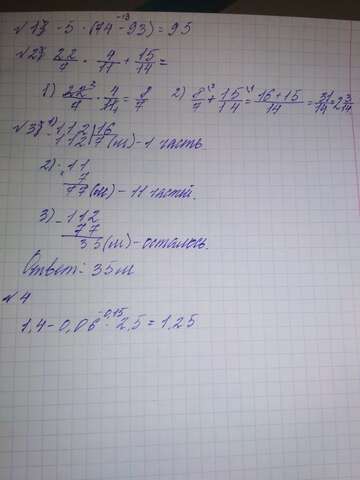 №1) -5 · (74-93) = 95
-19
№2) 22/7 · 4/11 + 15/14 =
1) 22²/7 · 4/11 = 8/7 2) 8/7 + 15/14 = 16+15/14 = 31/14 = 2 3/14
№3) 1) 112 | 16
112 7(м) - 1 часть
2) · 11
7
77(м) - 11 частей.
3) - 112
77
35(м) - осталось.
Ответ: 35м
№4
-0,15
1,4 - 0,06 · 2,5 = 1,25